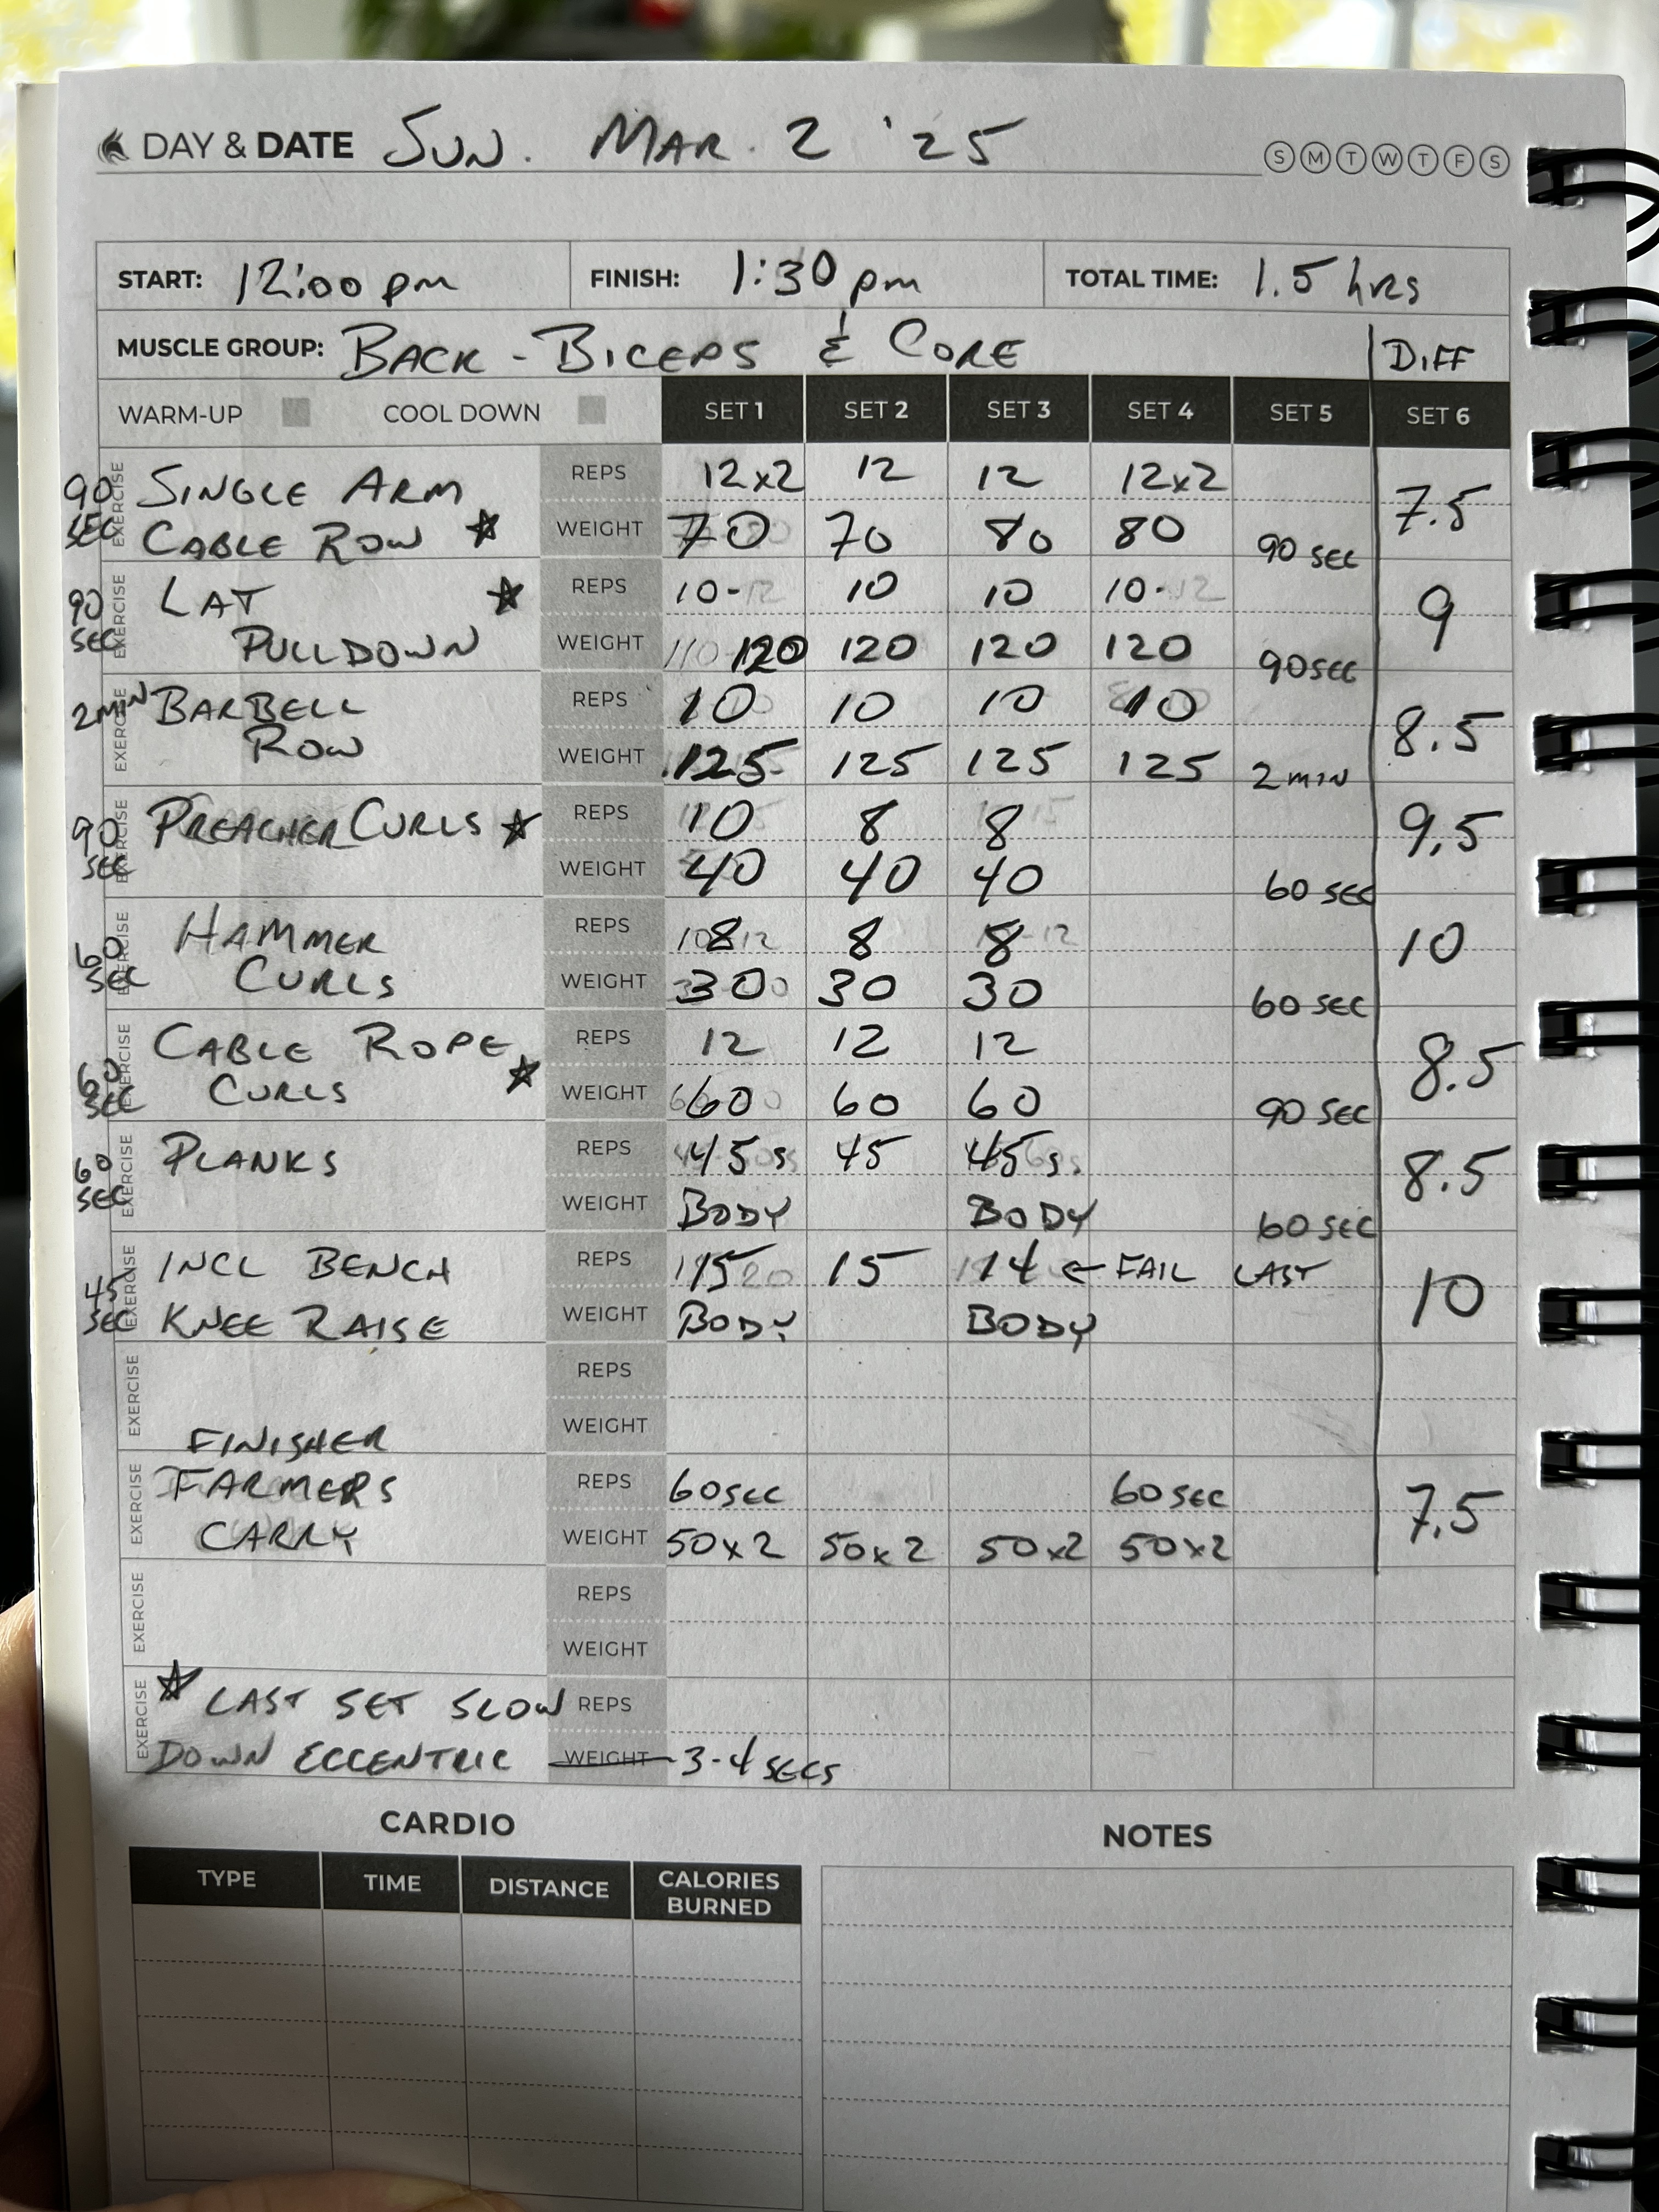 DAY & DATE SUN. MAR. 2 '25 S M T W T F S
START: 12:00 pm FINISH: 1:30 pm TOTAL TIME: 1.5 hrs
MUSCLE GROUP: BACK - BICEPS & CORE DIFF
WARM-UP COOL DOWN SET 1 SET 2 SET 3 SET 4 SET 5 SET 6
90 SEC EXERCISE SINGLE ARM REPS 12x2 12 12 12x2 7.5
CABLE ROW ☆ WEIGHT 70 70 80 80 90 SEC
90 SEC EXERCISE LAT ☆ REPS 10-12 10 10 10-12 9
PULLDOWN WEIGHT 110 120 120 120 120 90 SEC
2 MIN EXERCISE BARBELL REPS 10 10 10 10 8.5
ROW WEIGHT 125 125 125 125 2 MIN
90 SEC EXERCISE PREACHER CURLS ☆ REPS 10 8 8 9.5
WEIGHT 40 40 40 60 SEC
60 SEC EXERCISE HAMMER REPS 8 8 8 10
CURLS WEIGHT 30 30 30 60 SEC
60 SEC EXERCISE CABLE ROPE REPS 12 12 12 8.5
CURLS ☆ WEIGHT 60 60 60 90 SEC
60 SEC EXERCISE PLANKS REPS 45 s 45 45 s. 8.5
WEIGHT BODY BODY 60 SEC
45 SEC EXERCISE INCL BENCH REPS 15 15 14 ← FAIL LAST 10
KNEE RAISE WEIGHT BODY BODY
EXERCISE REPS
FINISHER WEIGHT
EXERCISE FARMERS REPS 60 SEC 60 SEC 7.5
CARRY WEIGHT 50x2 50x2 50x2 50x2
EXERCISE REPS
WEIGHT
EXERCISE ☆ LAST SET SLOW REPS
DOWN ECCENTRIC WEIGHT 3-4 SECS
CARDIO NOTES
TYPE TIME DISTANCE CALORIES BURNED